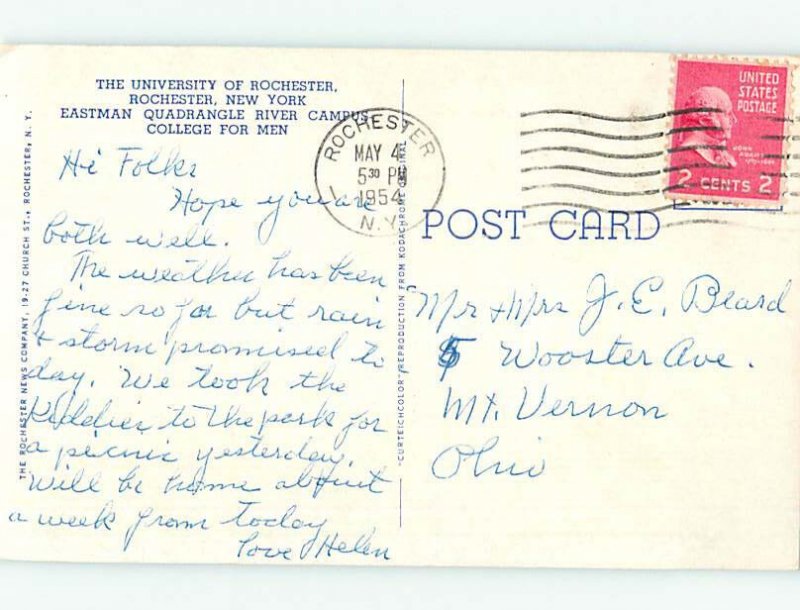 THE UNIVERSITY OF ROCHESTER,
ROCHESTER, NEW YORK
EASTMAN QUADRANGLE RIVER CAMPUS
COLLEGE FOR MEN
Hi Folks
Hope you are
both well.
The weather has been
fine so far but rain
& storm promised to
day. We took the
kiddies to the park for
a picnic yesterday.
Will be home about
a week from today
Love Helen
THE ROCHESTER NEWS COMPANY, 19-27 CHURCH ST., ROCHESTER, N. Y.
"CURTEICHCOLOR" REPRODUCTION FROM KODACHROME ORIGINAL
ROCHESTER
MAY 4
5 30 PM
1954
N.Y.
UNITED
STATES
POSTAGE
JOHN ADAMS
2 CENTS 2
POST CARD
Mr & Mrs J. E. Beard
5 Wooster Ave.
Mt. Vernon
Ohio